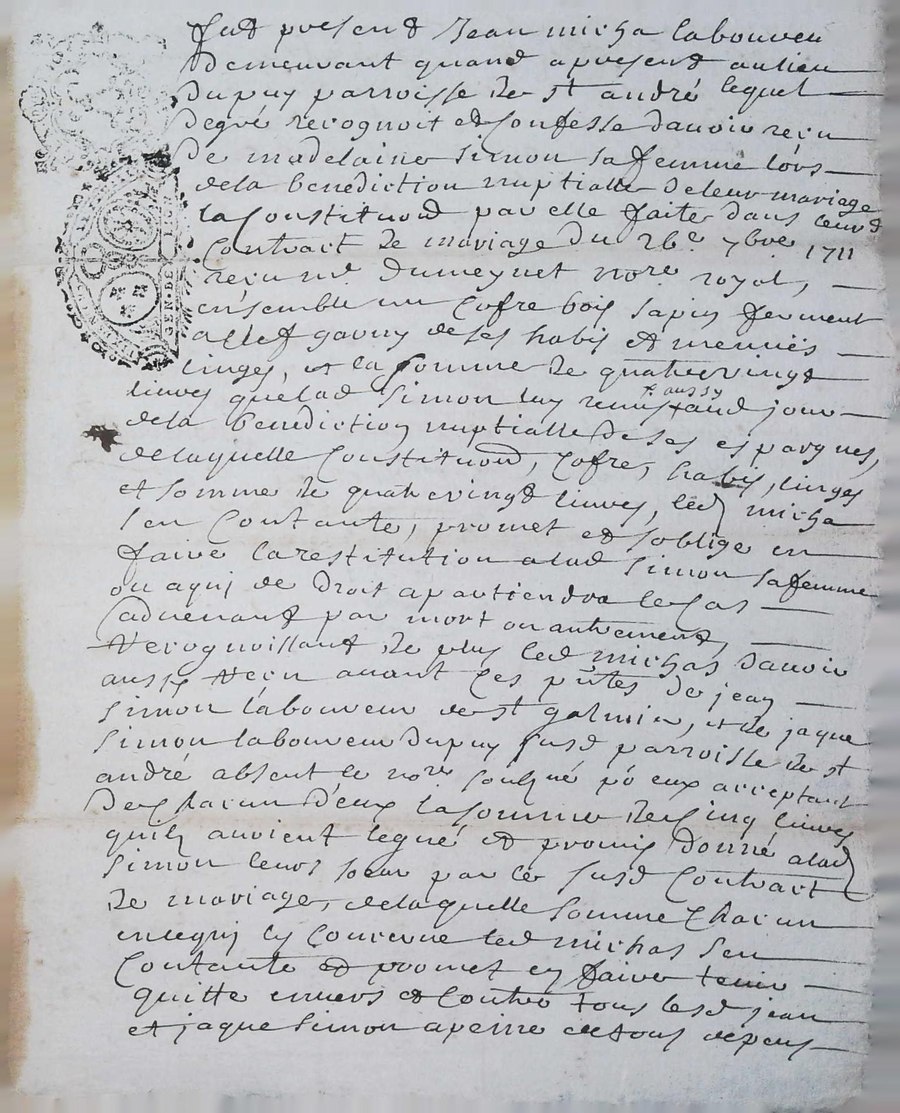 fut present Jean micha laboureu
demeurant quand a present au lieu
du puy parroisse de st andré lequel
de gré recognoit et confesse dauoir reçu
de madelaine simon sa femme lors
de la benediction nuptialle de leur mariage
la constituon par elle faite dans leurd
contract de mariage du 26e 7bre 1711
reçu me Dumeynet nore royal,
ensemble un cofre bois sapin ferment
a clef garny de ses habis et menues
linges, et la somme de quatrevingt
liures quelad simon luy remit aussy aud jour
de la benediction nuptialle de ses espargnes,
de laquelle constituon, cofre, habis, linges
et somme de quatrevingt liures, led micha
sen contante, promet et soblige en
faire la restitution alad simon sa femme
ou a quj de droit apartiendra le cas
aduenant par mort ou autrement,
Recognoissant de plus led michas dauoir
aussy recu auant ces pntes de jean
simon laboureur de st galmier, et de jaque
simon laboureur dupuy susd parroisse de st
andré absent le nore soubné po eux acceptant
de chacun deux la somme de cinq liures
quilz auoient legué et promis donné alad
simon leurs soeur par le susd contract
de mariage, de laquelle somme chacun
en ce quj les concerne led michas sen
contante et promet en faire tenir
quitte enuers et contre tous lesd jean
et jaque simon a peine de tous depens
GEN. DE